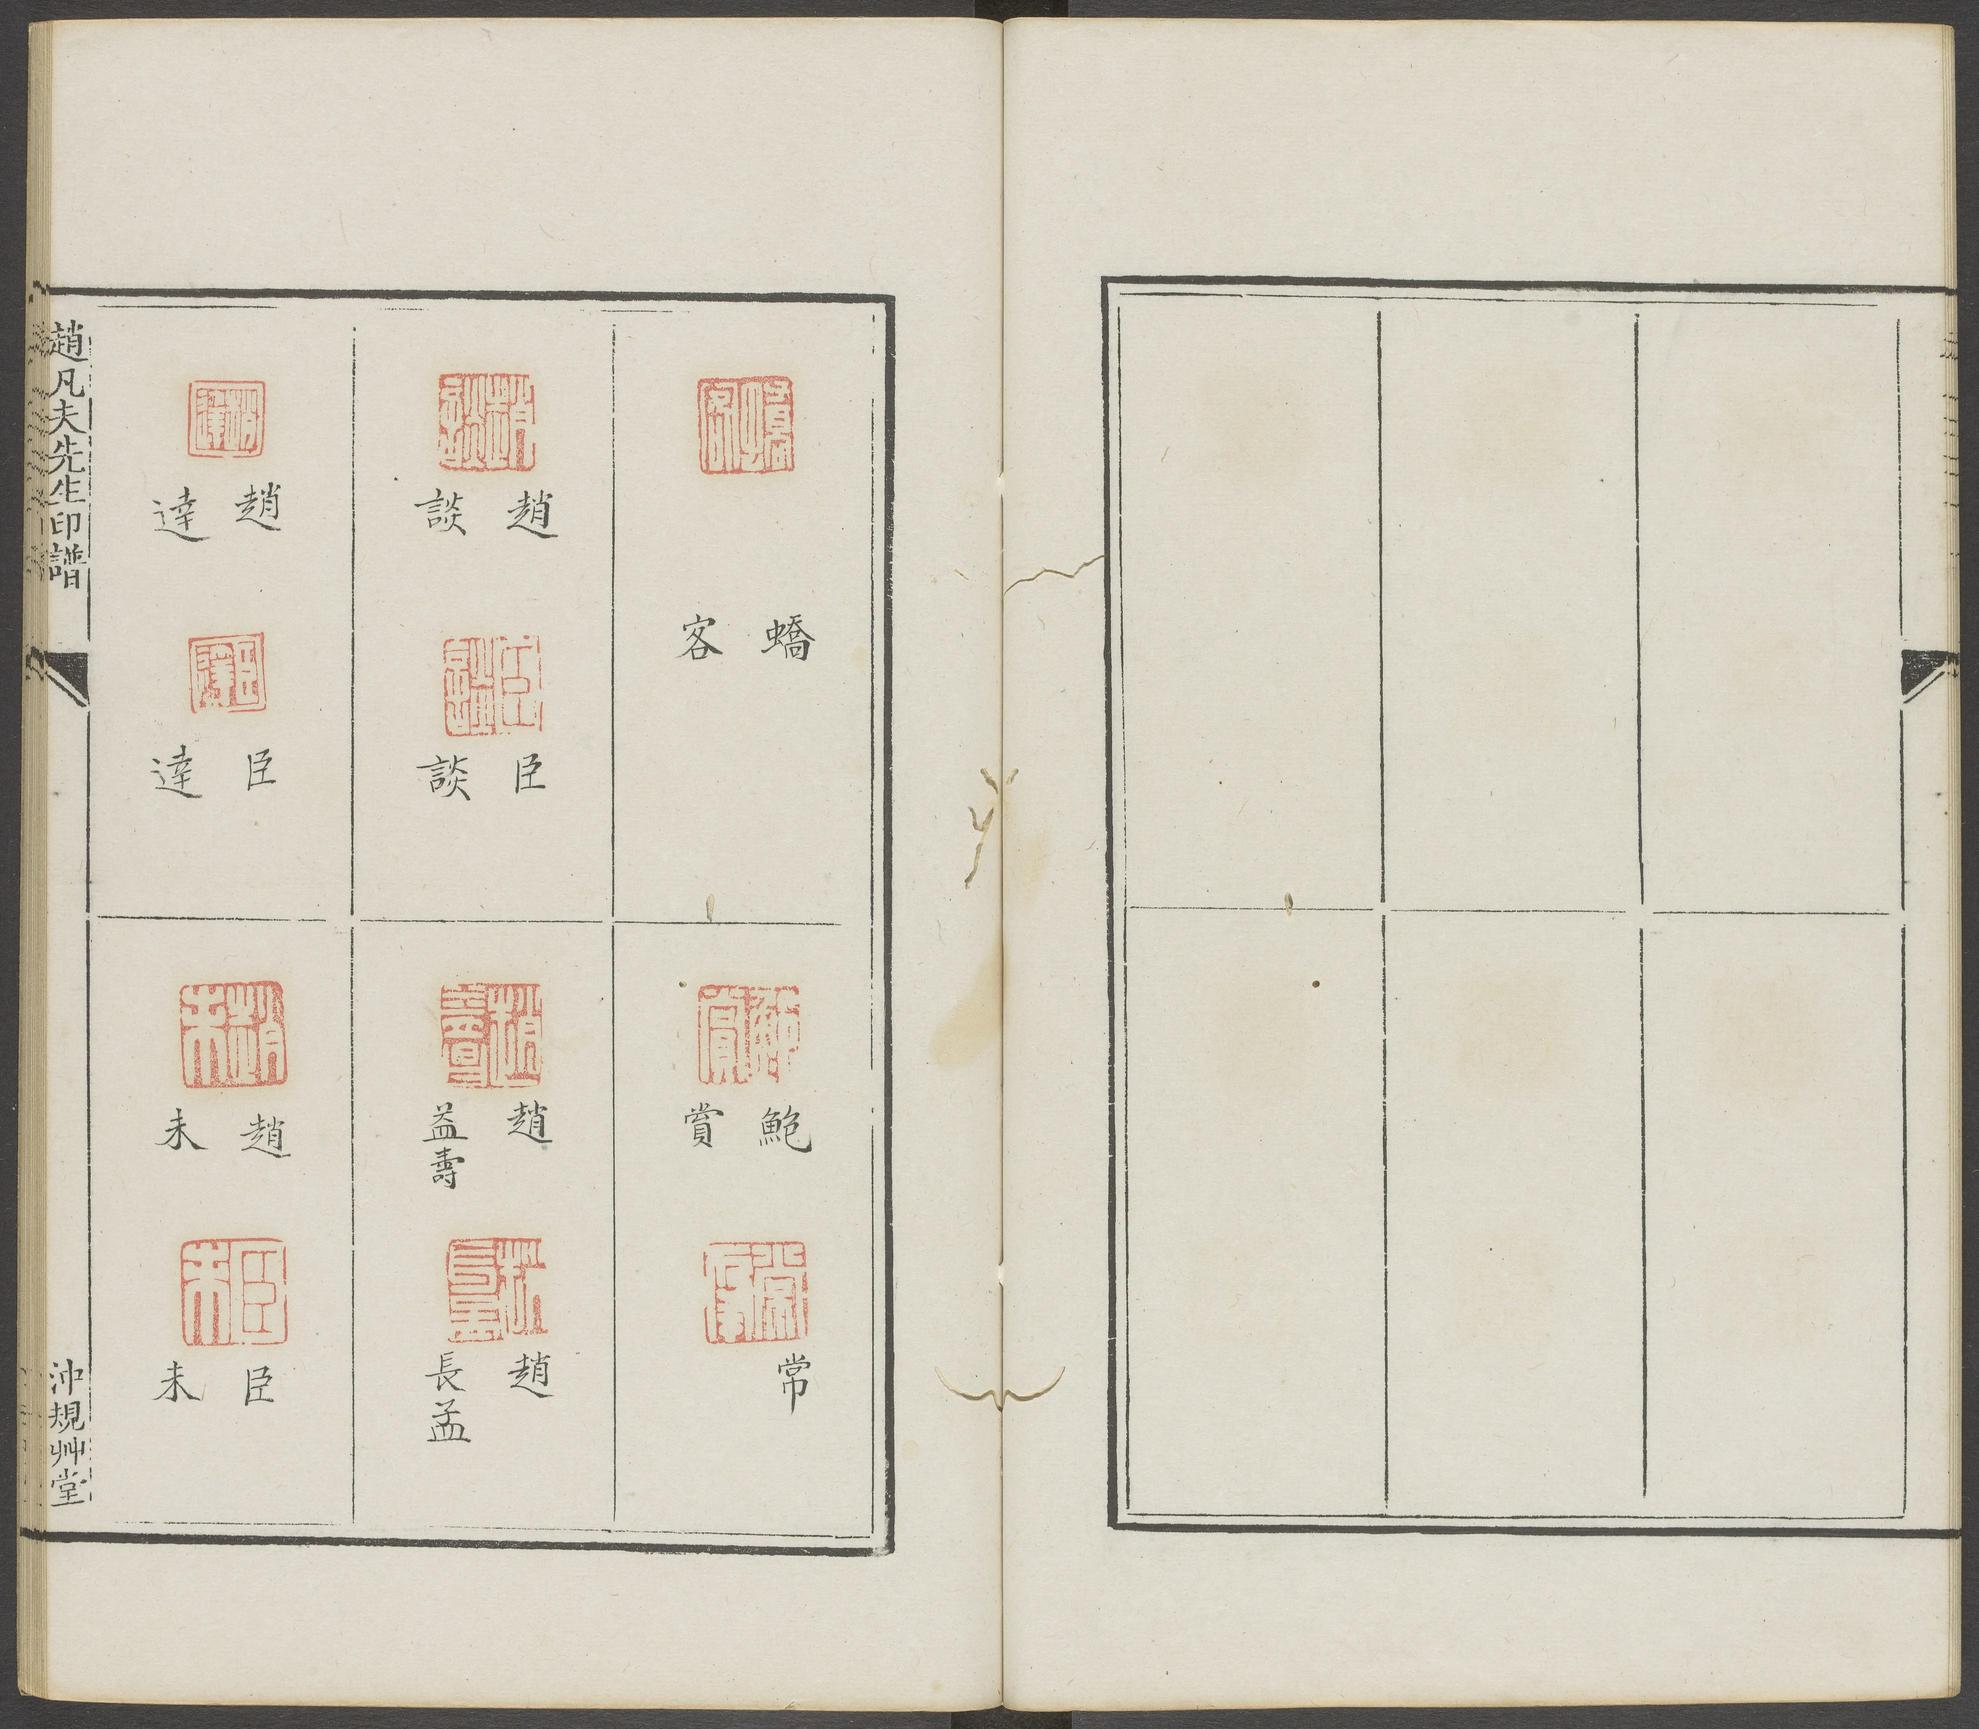 蟜客
鮑賞
常
趙談
臣談
趙益壽
趙長孟
趙達
臣達
趙未
臣未
趙凡夫先生印譜
沖規艸堂